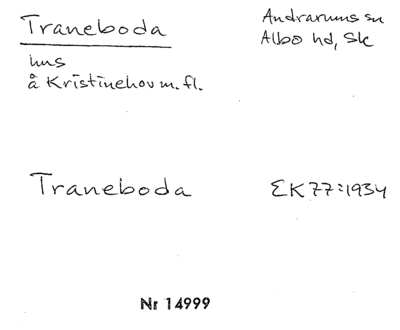 Traneboda
Andrarums sn
Albo hd, Sk
hus
å Kristinehov m. fl.
Traneboda
EK 77:1934
Nr 14999